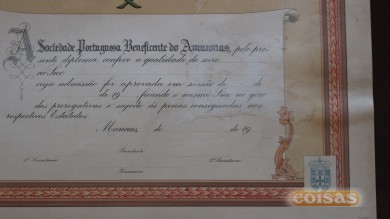 A Sociedade Portugueza Beneficente do Amazonas, pelo pre-
sente diploma, confere a qualidade de socio
ao Snr.
cuja admissão foi approvada em sessão de de
de 19 , ficando o mesmo Snr. no gozo
das prerogativas e sujeito ás penas consignadas nos
respectivos Estatutos.
Manaus, de de 19
Presidente
1º Secretario 2º Secretario
coisas